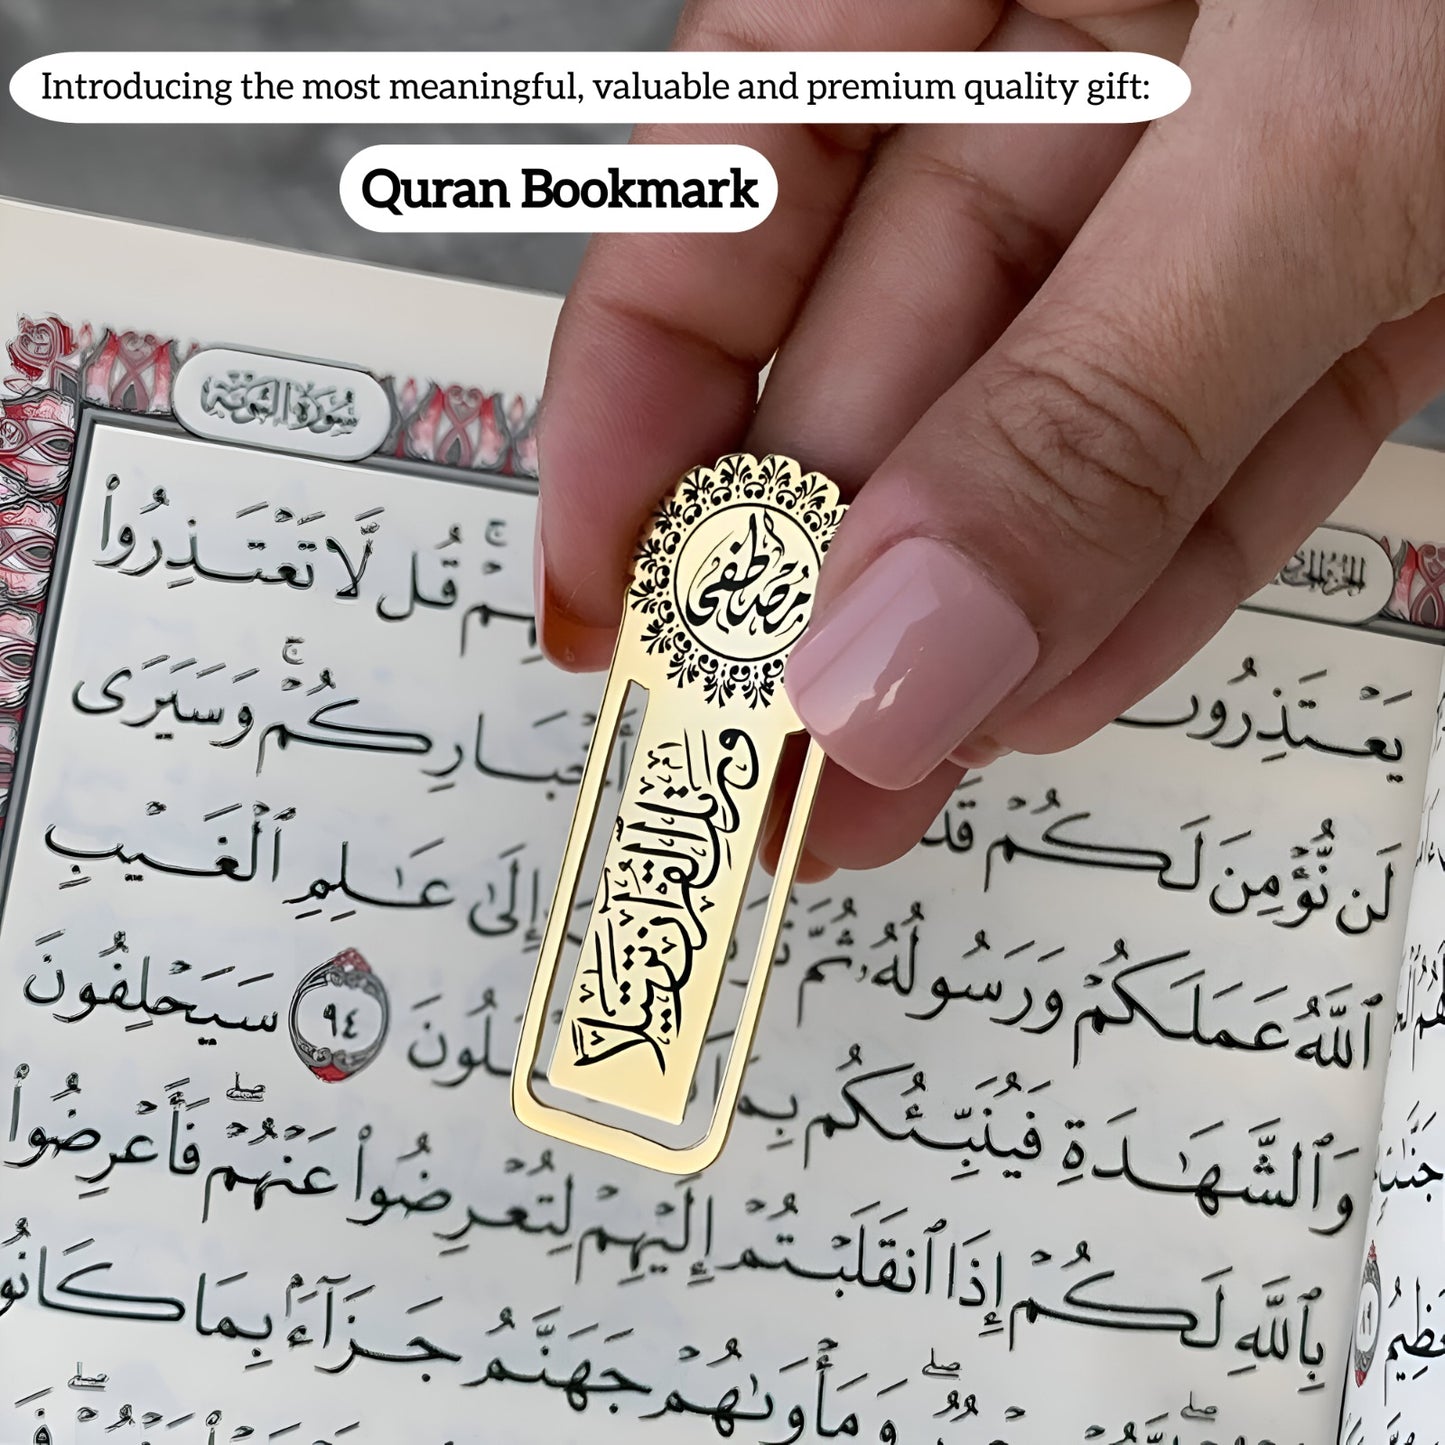 Introducing the most meaningful, valuable and premium quality gift:
Quran Bookmark
سُورَةُ التَّوْبَة
مُصْطَفَى
وَرَتِّلِ الْقُرْآنَ تَرْتِيلًا
يَعْتَذِرُونَ قُل لَّا تَعْتَذِرُوا۟
لَن نُّؤْمِنَ لَكُمْ قَدْ أَخْبَارِكُمْ ۚ وَسَيَرَى
ٱللَّهُ عَمَلَكُمْ وَرَسُولُهُۥ ثُمَّ إِلَىٰ عَـٰلِمِ ٱلْغَيْبِ
وَٱلشَّهَـٰدَةِ فَيُنَبِّئُكُم بِمَا ٩٤ سَيَحْلِفُونَ
بِٱللَّهِ لَكُمْ إِذَا ٱنقَلَبْتُمْ إِلَيْهِمْ لِتُعْرِضُوا۟ عَنْهُمْ ۖ فَأَعْرِضُوا۟
وَمَأْوَىٰهُمْ جَهَنَّمُ جَزَآءًۢ بِمَا كَانُوا۟